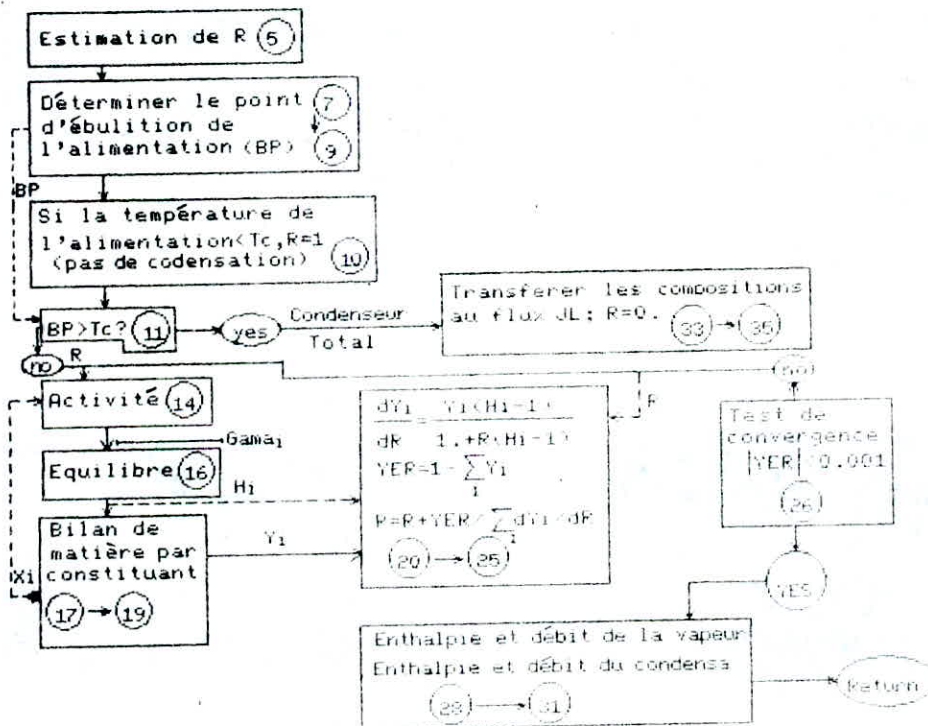 Estimation de R 5
Déterminer le point 7
d'ébulition de
l'alimentation (BP) 9
BP
Si la température de
l'alimentation<Tc,R=1
(pas de codensation) 10
BP>Tc? 11
yes
Condenseur
Total
Transferer les compositions
au flux JL; R=0.
33 → 35
no
R
Activité 14
Gama1
Equilibre 16
Hi
Bilan de
matière par
constituant
17 → 19
Xi
Y1
dYi = Yi(Hi-1)
dR 1.+R(Hi-1)
YER=1- ∑ Yi
i
R=R+YER/ ∑ dYi/dR
i
20 → 25
R
no
Test de
convergence
|YER|<0.001
26
YES
Enthalpie et débit de la vapeur
Enthalpie et débit du condensa
28 → 31
Return